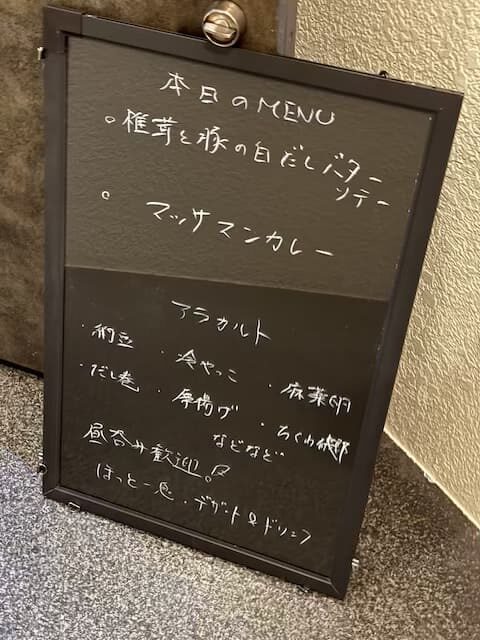 本日のMENU
○椎茸と豚の白だしバター
ソテー
○ マッサマンカレー
アラカルト
・納豆 ・冷やっこ ・麻薬卵
・だし巻 ・厚揚げ ・ちくわ磯部
などなど
昼呑み歓迎!
ほっと一息・デザート&ドリンク